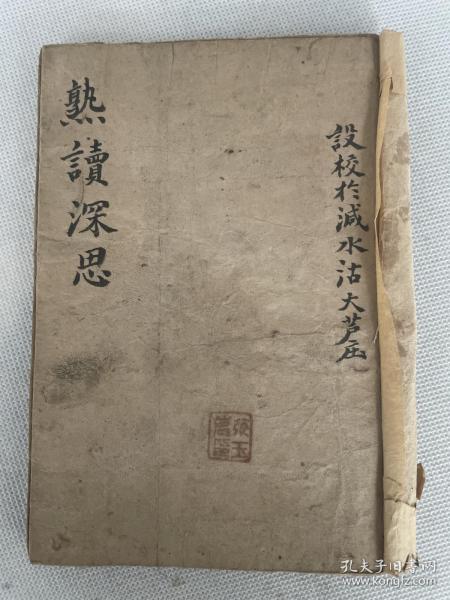 設校於減水沽大芦庄
熟讀深思
張玉
印
孔夫子旧书网
www.kongfz.com